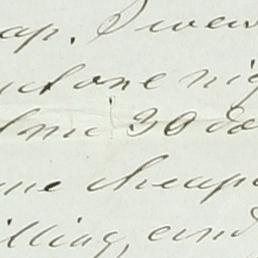 ap. I wen
one nig
me 30 do
me cheape
illing, and